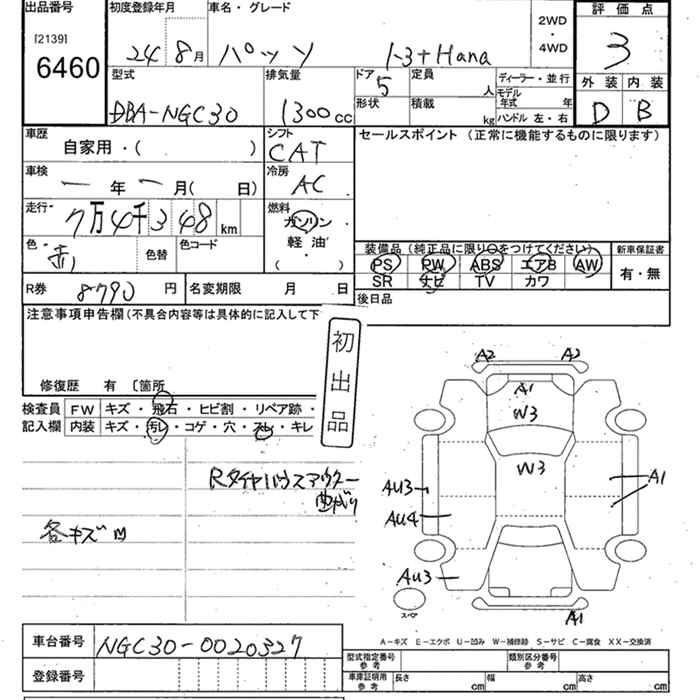 出品番号 初度登録年月 車名・グレード 2WD・4WD 評価点
[2139]
6460 24 8月 パッソ 1.3+Hana 3
型式 排気量 ドア 定員 人 ディーラー・並行 外装 内装
DBA-NGC30 1300cc 5 形状 積載 kg モデル年式 年 ハンドル 左・右 D B
車歴 自家用・( ) シフト CAT セールスポイント (正常に機能するものに限ります)
車検 一年一月( 日) 冷房 AC
走行 7万4千348km 燃料 ガソリン 軽油 ( )
色 赤 色替 色コード
装備品 (純正品に限り○をつけてください) 新車保証書
PS PW ABS エアB AW 有・無
SR ナビ TV カワ
R券 8790円 名変期限 月 日 後日品
注意事項申告欄 (不具合内容等は具体的に記入して下
初出品
修復歴 有 〔箇所
検査員 FW キズ・飛石・ヒビ割・リペア跡・
記入欄 内装 キズ・汚レ・コゲ・穴・スレ・キレ
Rタイヤハウスアウター
曲がり
各キズ凹
A2 A2
A1
W3
W3
AU3 A1
AU4
AU3
A1
A-キズ E-エクボ U-凹み W-補修跡 S-サビ C-腐食 XX-交換済
車台番号 NGC30-0020327
型式指定番号 参考 類別区分番号 参考
登録番号 車庫証明用 参考 長さ cm 幅 cm 高さ cm